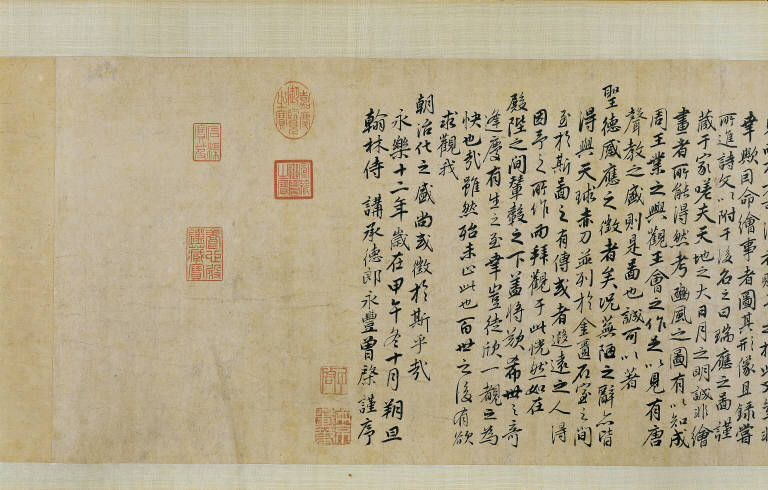 幸歟因命繪事者圖其形像且録嘗
所進詩文以附于後名之曰瑞應之圖謹
藏于家嗟夫天地之大日月之明誠非繪
畫者所能得然考豳風之圖有以知成
周王業之興觀王會之作足以見有唐
聲教之盛則是圖也誠可以著
聖德感應之徵者矣况蕪陋之辭亦皆
得與天球赤刀並列於金匱石室之間
至於斯圖之有傳或者遐遠之人得
因予之所作而拜觀于此恍然如在
殿陛之間輦轂之下蓋將歎希世之奇
逢慶有生之至幸豈徒欣一觀之為
快也哉雖然殆未止此也百世之後有欲
求觀我
朝治化之盛尚或徵於斯乎哉
永樂十二年歲在甲午冬十月朔旦
翰林侍講承德郎永豐曾棨謹序
嘉慶御覽之寶
養心殿鑑藏寶